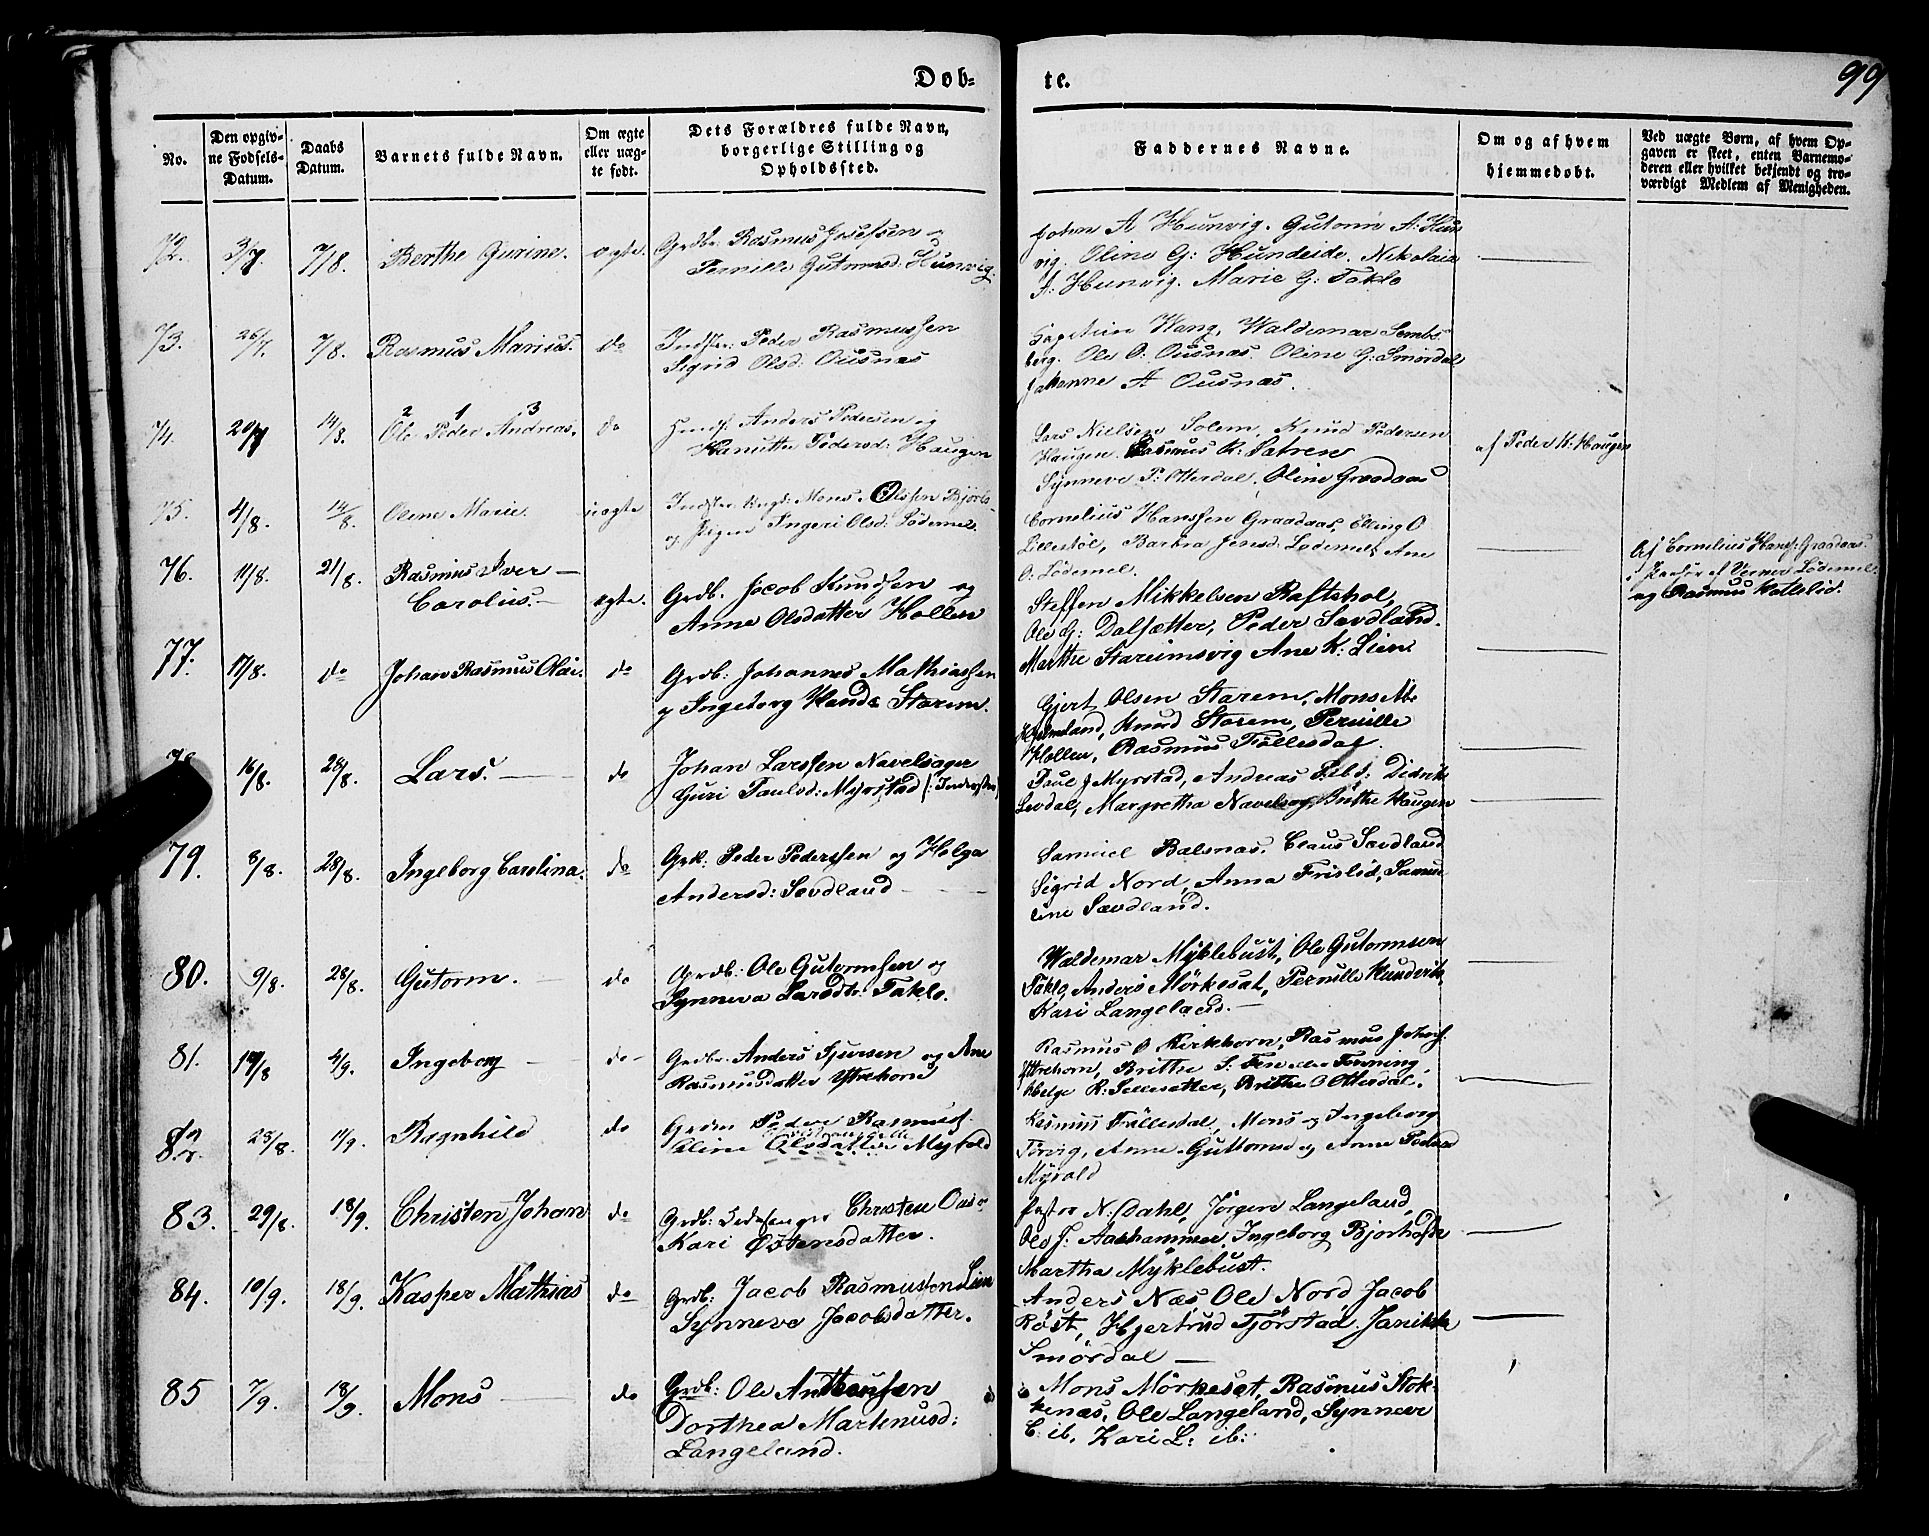 Døb-
te.
99
No.
Den opgiv-
ne Fødsels-
Datum.
Daabs
Datum.
Barnets fulde Navn.
Om ægte
eller uæg-
te født.
Dets Forældres fulde Navn,
borgerlige Stilling og
Opholdssted.
Faddernes Navne.
Om og af hvem
hjemmedøbt.
Ved uægte Børn, af hvem Op-
gaven er skeet, enten Barnemo-
deren eller hvilket bekjendt og tro-
værdigt Medlem af Menigheden.
72. 3/7. 7/8. Berthe Gurine. ægte. Grdbr. Rasmus Josefsen og
Pernille Gutormsd: Hunvig.
John A Hunvig. Gutorm A: Hun
vig. Oline G: Hundeide. Nikolai
A: Hunvig. Marie G: Taklo
73. 26/7. 7/8. Rasmus Marius. do Indst: Peder Rasmussen
Sigrid Olsd: Ousnæs
Capitain Wang, Waldemar Sembs
berg. Ole O: Ousnæs. Oline G: Smørdal
Johanne A Ousnæs.
74. 20/7 14/8. Ole Peder Andreas. do Anders Pedersen og
2 1 3
Pedersd: Haugen
Lars Nielsen Solem, Knud Pedersen
Haugen. Rasmus R: Sætren
Synneve P: Otterdal. Oline Graadaas
af Peder K: Haugen
75. 4/8. 14/8. Oline Marie. uægte Mons Olsen
og Pigen Ingeri Olsd: Lødemel.
Cornelius Hanssen Graadaas, Elling O
Lillestøl, Barbra Jensd: Lødemel, Ane
O: Lødemel.
Af Cornelius Hans: Graadaas
af Lødemel.
og Rasmus Kattelid.
76. 11/8. 21/8. Rasmus Iver
Carolus. ægte. Grdb. Jacob Knudsen og
Anne Olsdatter Hollen
Steffen Mikkelsen Raftshol,
Ole G: Dalsætter, Peder Sævdland.
Marthe Stareimsvig Ane K: Lien
77. 17/8. do Johan Rasmus Olai. do Grdb: Johannes Mathiassen
og Ingeborg Starem.
Gjert Olsen Starem, Mons M:
Hjelmeland, Knud Starem, Pernille
Hollen, RasmusFøllesdal.
16/8. 28/8. Lars. do Johan Larssen Navelsager
Guri Paulsd: Myrstad (: Inderster)
Paul J Myrstad, Andreas Didrik
Levdal, Margretha Navelsag, Brithe Haugen
79. 8/8. 28/8. Ingeborg Carolina. do Grb: Peder Pederssen og Helga
Andersd: Sævdland
Samuel Balsnæs, Claus Sævdland
Sigrid Nord, Anna Frislid, Samu
line Sævdland.
80. 9/8. 28/8. Gutorm. do Grdb: Ole Gutormsen og
Synneva Larsdtr: Taklo.
Waldemar Myklebust, Ole Gutormsen
Taklo, Anders Mørkesæt, Pernille Hundvik
Kari Langeland.
81. 14/8 4/9. Ingeborg do Grdbr. Anders Sjursen og Ane
Rasmusdatter Yttrehorn
Rasmus O Kirkhorn, Rasmus Johs:
Yttrehorn, Brithe S: Fenning,
Helge R: Sellesætter, Brithe O Otterdal.
82. 25/8. 11/9. Ragnhild do Peder Rasmus.
Oline Olsdatter Myrold
Rasmus Føllesdal, Mons og Ingeborg
Tørvig, Anne Guttormsd og Anne Pedersd
Myrold
83. 29/8. 18/9. Christen Johan do Grdb: Christen Oas-
Kari Østensdatter.
Pastor N: Dahl, Jørgen Langeland,
Ole J: Aashammer, Ingeborg Bjørhofde
Martha Myklebust.
84. 10/9. 18/9. Kasper Mathias do Grdb: Jacob Rasmussen Lien
Synneve Jacobsdatter.
Anders Næs, Ole Nord, Jacob
Røst, Hjertrud Tjørstad. Janikke
Smørdal
85 7/9. 18/9. Mons do Grdb: Ole Anthonsen
Dorthea Martenusd:
Langeland.
Mons Mørkesæt, Rasmus Stok-
kenæs, Ole Langeland, Synneve
C: ib, Kari L: ib: